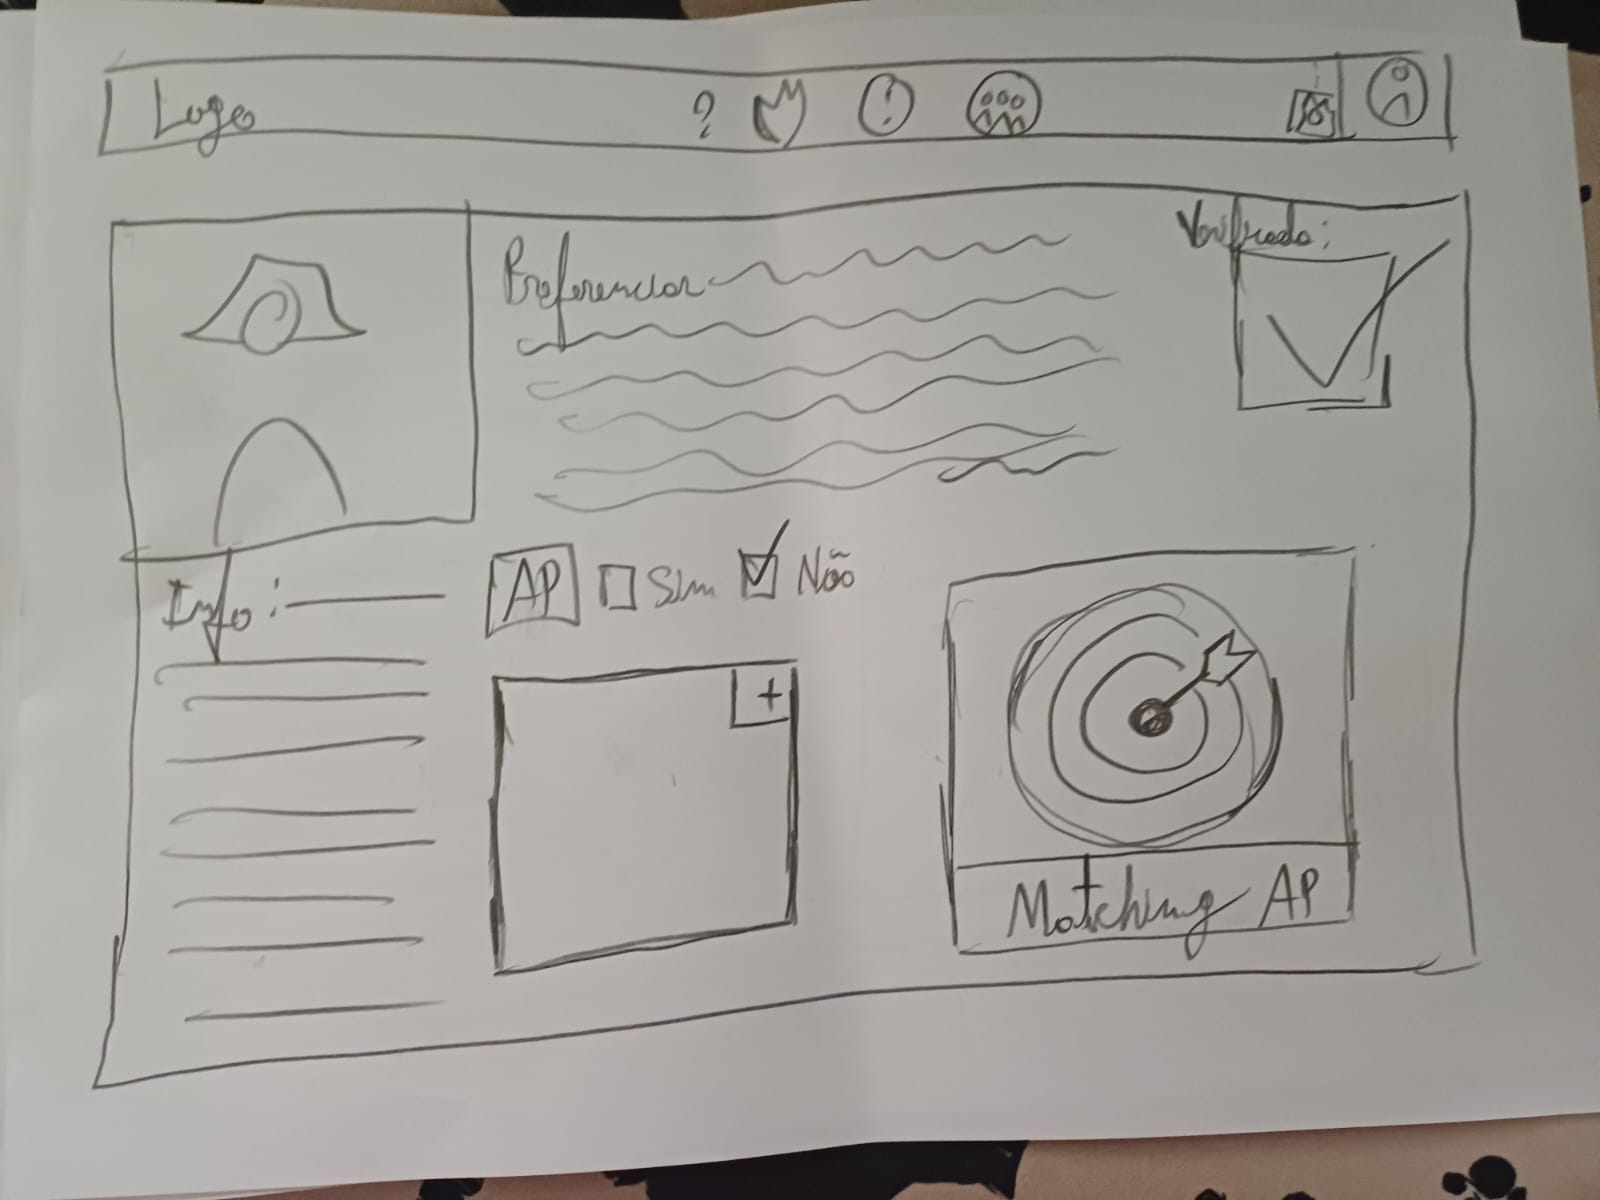 Logo
?
!
Preferencias
Verificado:
Info:
AP Sim Não
+
Matching AP